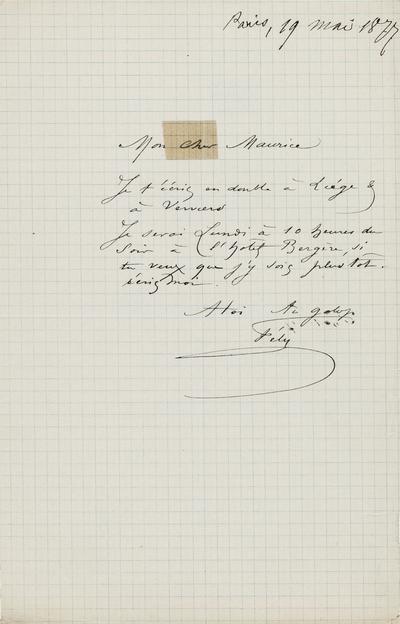 Paris, 19 mai 1877
Mon cher Maurice
Je t'écris en double à Liége &
à Verviers
Je serai Lundi à 10 heures du
Soir à l'hotel Bergère, si
tu veux que j'y sois plus tot.
écris moi.
A toi Au galop
Féli